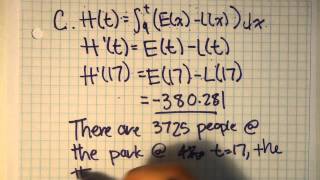 C. H(t) = ∫₉ᵗ (E(x) - L(x)) dx
H'(t) = E(t) - L(t)
H'(17) = E(17) - L(17)
= -380.281
There are 3725 people @
the park @ t=17, the